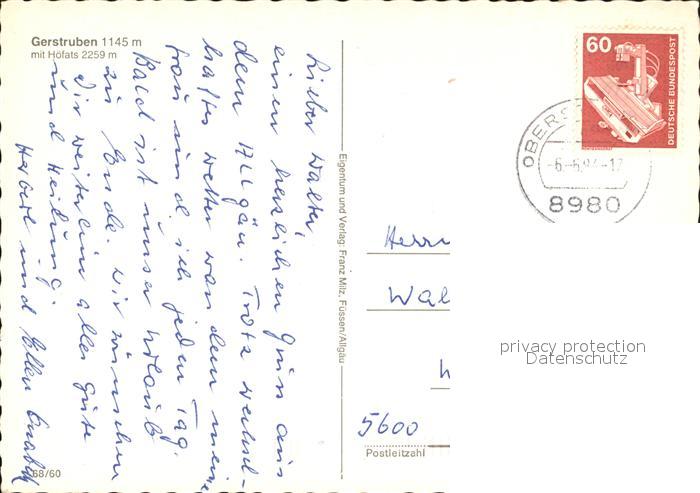 Gerstruben 1145 m
mit Höfats 2259 m
Lieber Walter,
einen herzlichen Gruss aus
dem Allgäu. Trotz wechsel-
haftes Wetter wandern meine
Frau und ich jeden Tag.
Bald ist unser Urlaub
zu Ende. Wir wünschen
Dir weiterhin alles Gute
und Heilung.
Herbert und Ellen
68/60
Eigentum und Verlag: Franz Milz, Füssen/Allgäu
60
DEUTSCHE BUNDESPOST
OBERS
-6.-6.84-17
8980
Herrn
Wal
privacy protection
Datenschutz
5600
Postleitzahl